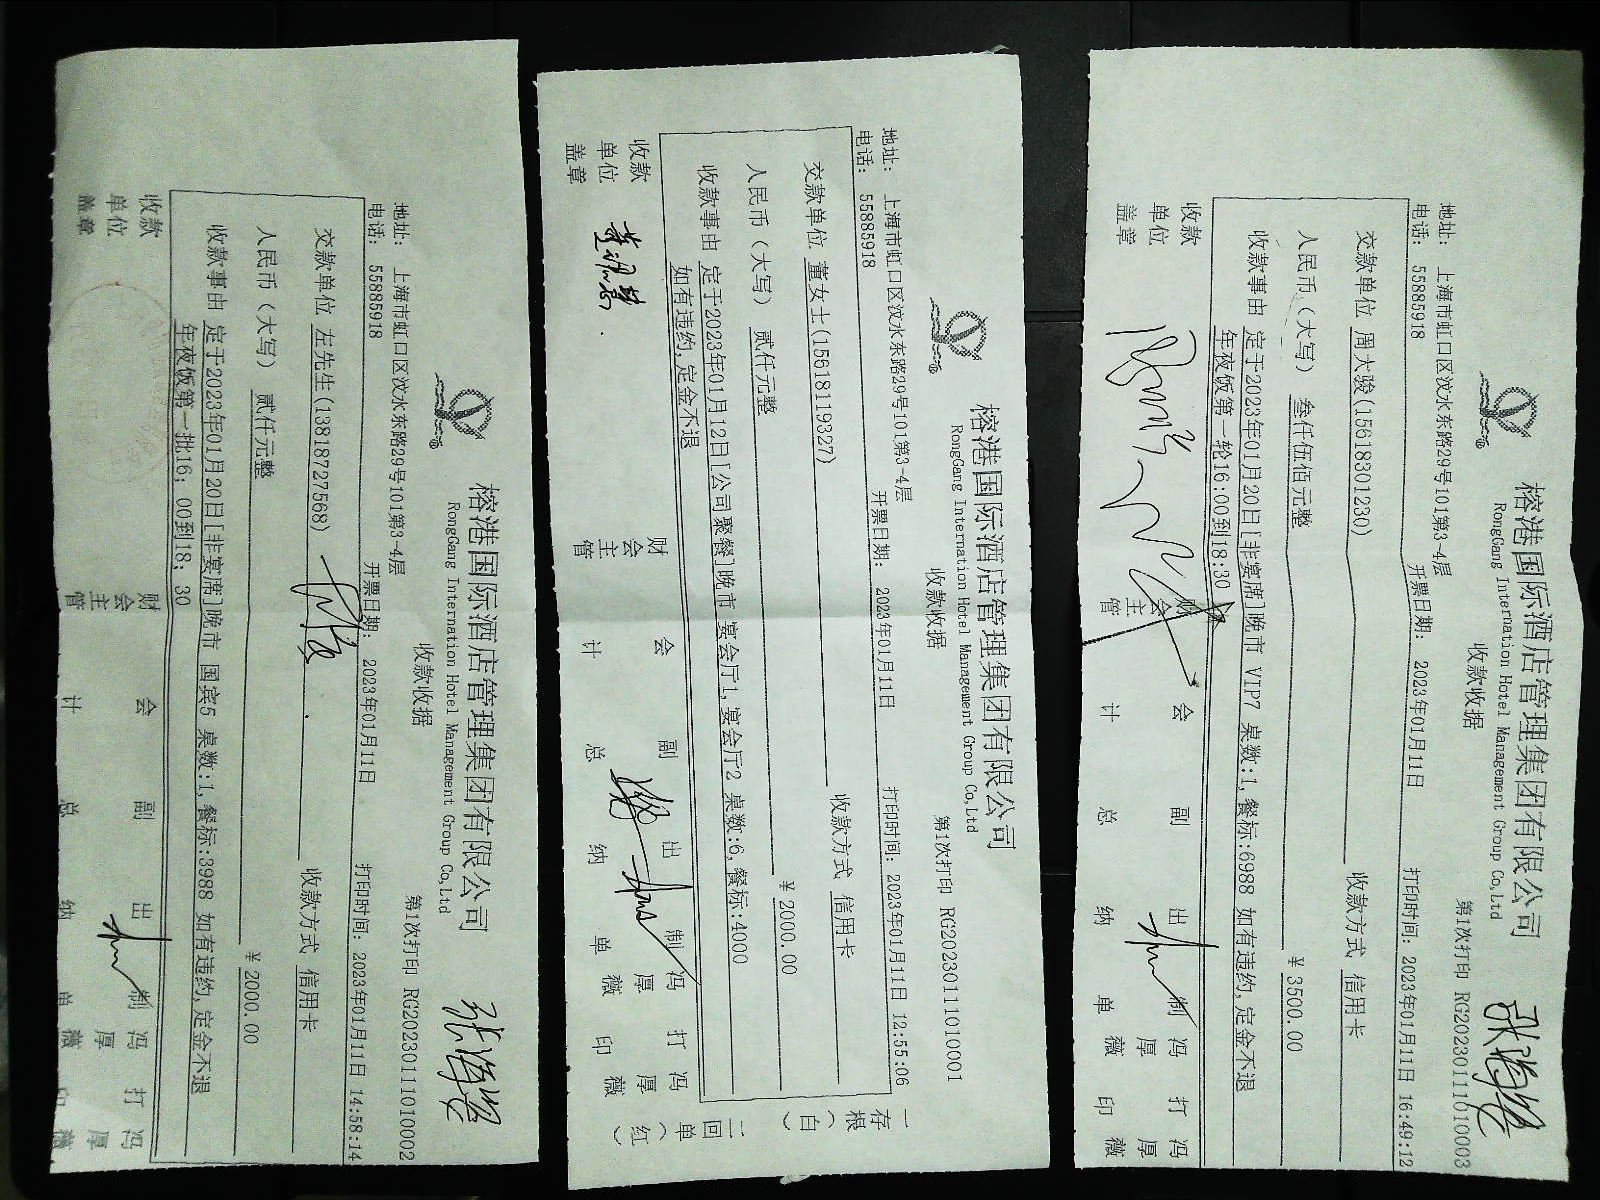 榕港国际酒店管理集团有限公司
RongGang International Hotel Management Group Co,Ltd
收款收据
第1次打印 RG20230111010002
地址: 上海市虹口区汶水东路29号101第3-4层
电话: 55885918
开票日期: 2023年01月11日
打印时间: 2023年01月11日 14:58:14
交款单位 左先生(13818727568)
收款方式 信用卡
人民币（大写） 贰仟元整
¥ 2000.00
收款事由 定于2023年01月20日[非宴席]晚市 国宾5 桌数:1,餐标:3988 如有违约,定金不退
年夜饭第一批16；00到18；30
收款单位盖章
财会主管
会计
副总
出纳
制单 冯厚薇
打印 冯厚薇
榕港国际酒店管理集团有限公司
RongGang International Hotel Management Group Co,Ltd
收款收据
第1次打印 RG20230111010001
地址: 上海市虹口区汶水东路29号101第3-4层
电话: 55885918
开票日期: 2023年01月11日
打印时间: 2023年01月11日 12:55:06
交款单位 董女士(15618119327)
收款方式 信用卡
人民币（大写） 贰仟元整
¥ 2000.00
收款事由 定于2023年01月12日[公司聚餐]晚市 宴会厅1,宴会厅2 桌数:6,餐标:4000
如有违约,定金不退
收款单位盖章
财会主管
会计
副总
出纳
制单 冯厚薇
打印 冯厚薇
一存根（白）
二回单（红）
榕港国际酒店管理集团有限公司
RongGang International Hotel Management Group Co,Ltd
收款收据
第1次打印 RG20230111010003
地址: 上海市虹口区汶水东路29号101第3-4层
电话: 55885918
开票日期: 2023年01月11日
打印时间: 2023年01月11日 16:49:12
交款单位 周大骏(15618301230)
收款方式 信用卡
人民币（大写） 叁仟伍佰元整
¥ 3500.00
收款事由 定于2023年01月20日[非宴席]晚市 VIP7 桌数:1,餐标:6988 如有违约,定金不退
年夜饭第一轮16:00到18:30
收款单位盖章
财会主管
会计
副总
出纳
制单 冯厚薇
打印 冯厚薇